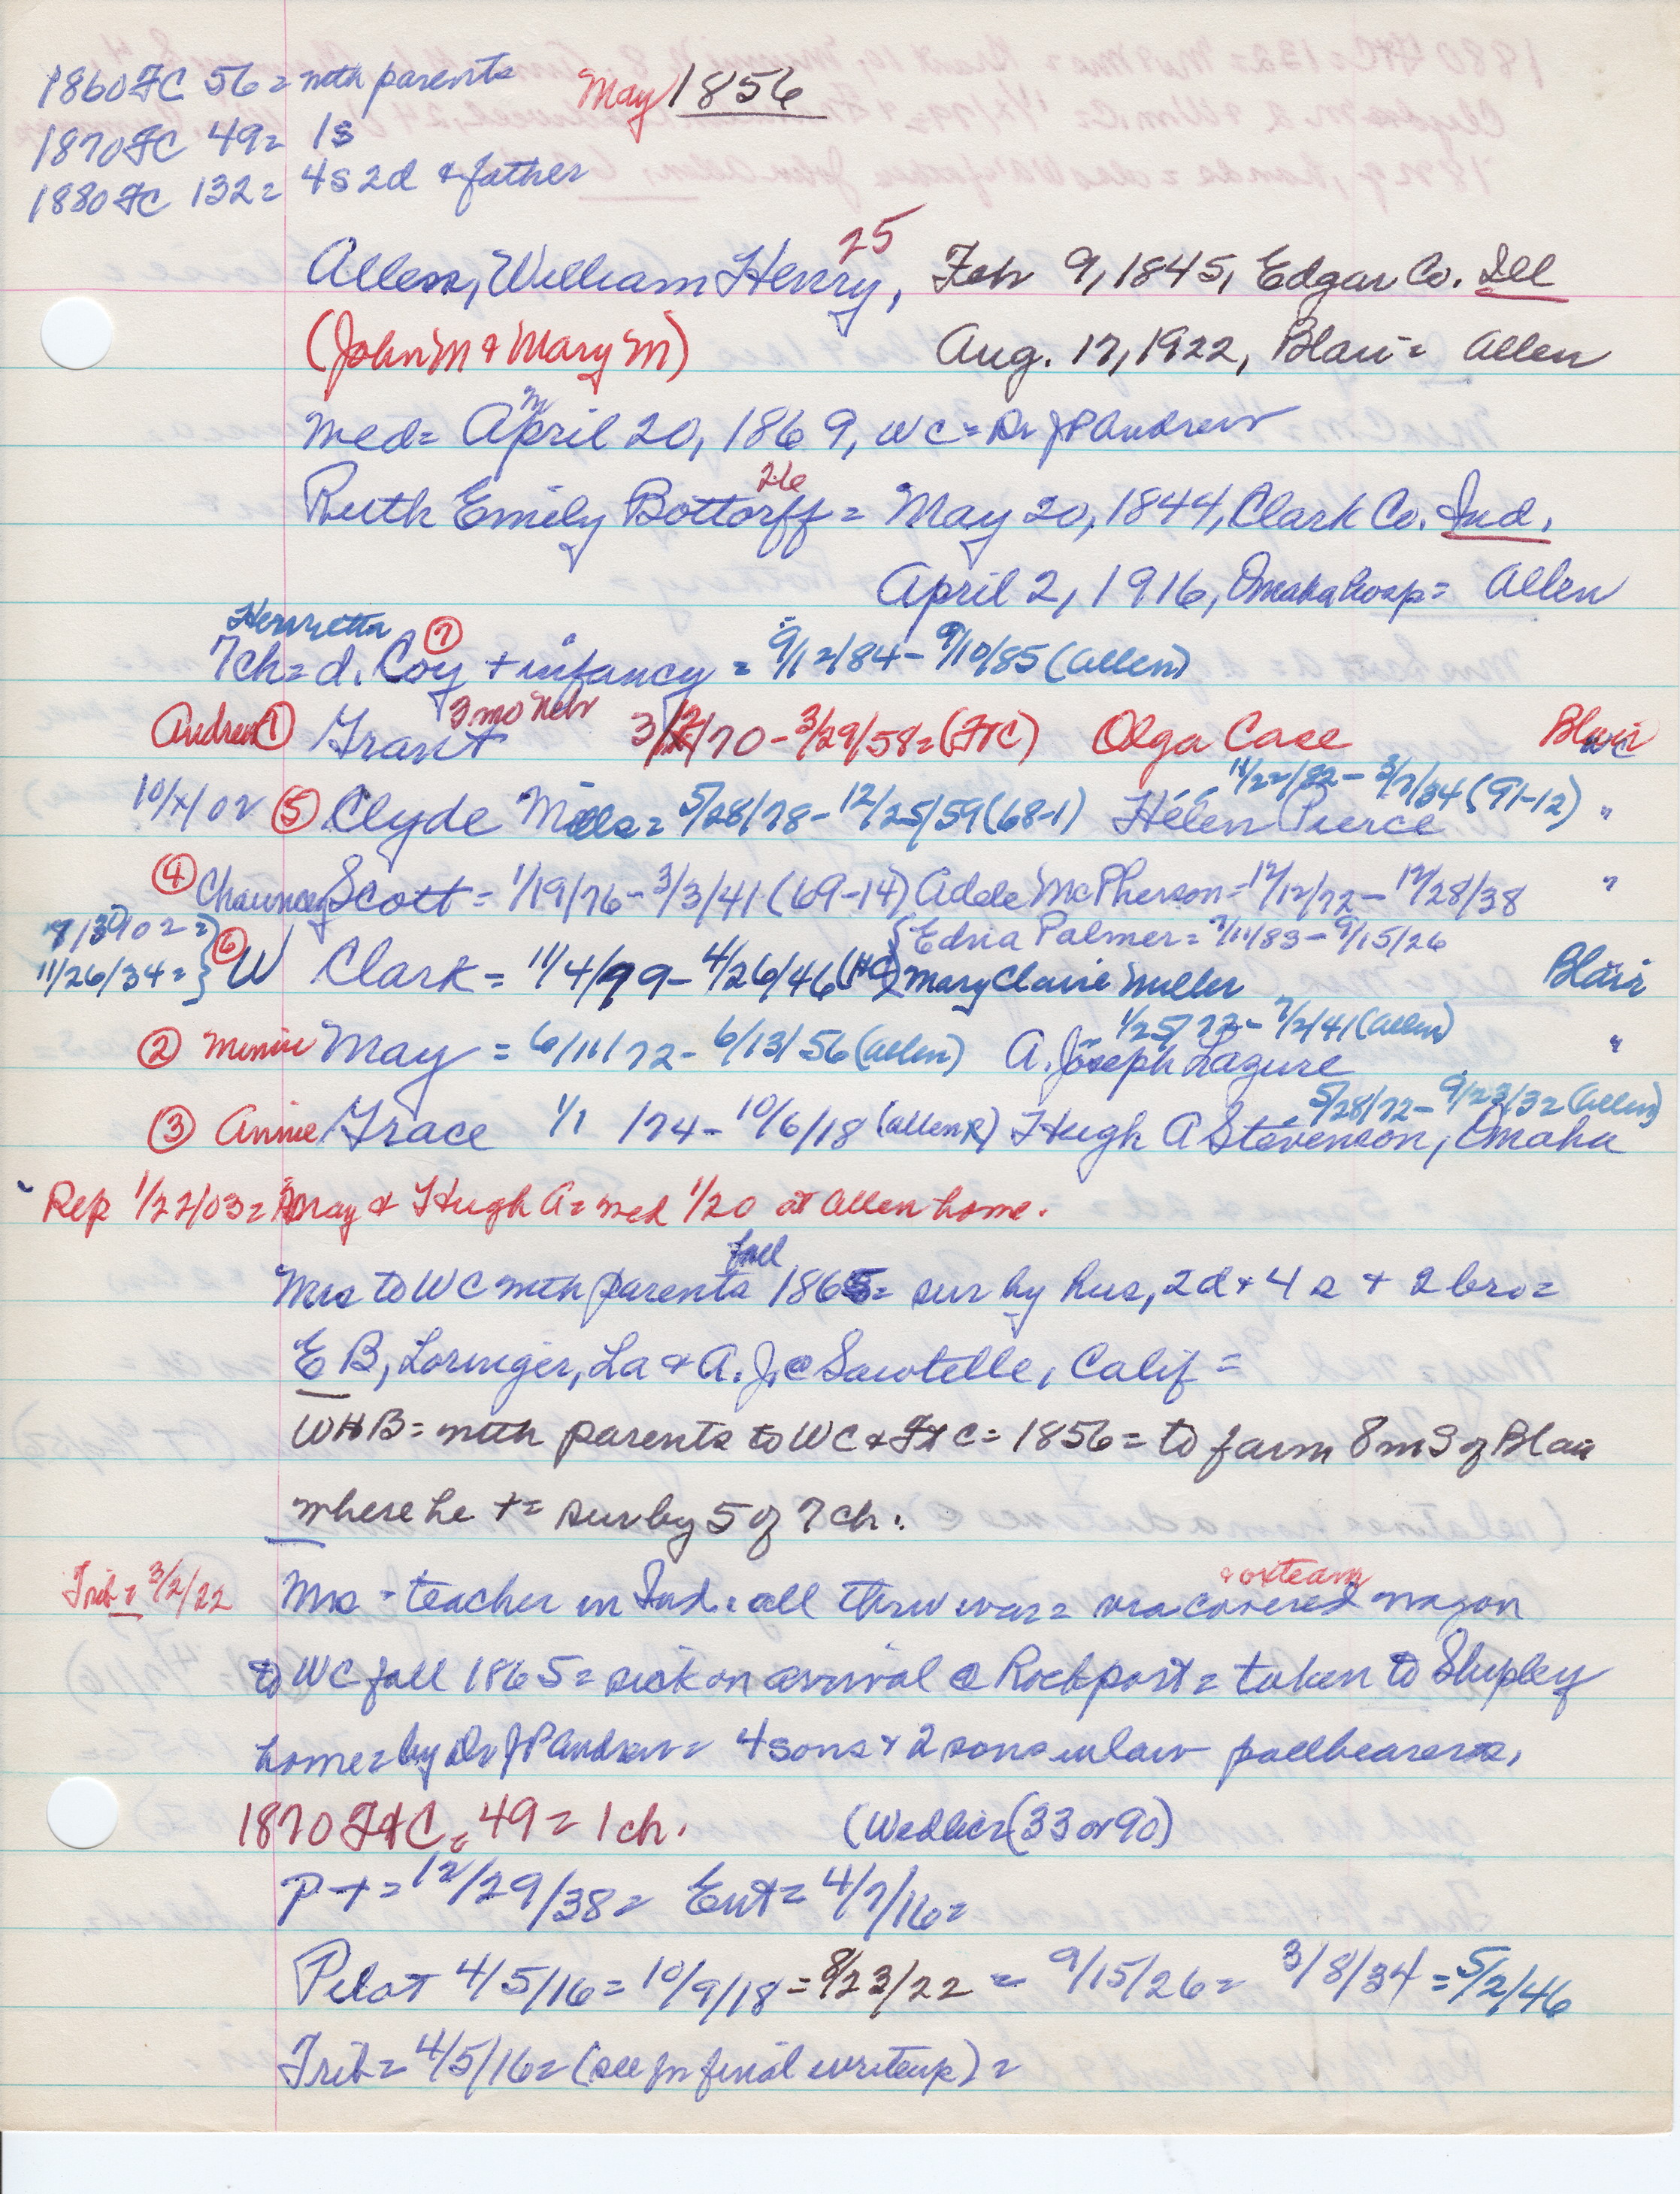 1860 FC 56 = with parents
May 1856
1870 FC 49 = 1s
1880 FC 132 = 4s 2d & father
25
Allen, William Henry, Feb 9, 1845, Edgar Co. Ill
(John M & Mary M) Aug. 17, 1922, Blair = Allen
M
Med = April 20, 1869, WC = Dr JP Andrew
26
Ruth Emily Bottorff = May 20, 1844, Clark Co. Ind.
April 2, 1916, Omaha hosp = Allen
Henrietta ⑦
7ch = d. Coy + infancy = 9/12/84 - 9/10/85 (Allen)
3 mo Nebr
Andrew ① Grant 3/12/70 - 3/29/58 = (FtC) Olga Case Blair
WC
11/22/82 - 3/7/34 (91-12)
10/x/02 ⑤ Clyde Mills = 5/28/78 - 12/25/59 (68-1) Helen Pierce "
④ Chauncey Scott = 1/19/76 - 3/3/41 (69-14) Adele McPherson = 12/12/72 - 12/28/38 "
7/30/02 = } { Edna Palmer = 7/11/83 - 9/15/26
11/26/34 = } ⑥ W Clark = 11/4/99 - 4/26/46 (HC) Mary Claire Miller Blair
1/25/72 - 7/2/41 (Allen)
② Minnie May = 6/11/72 - 6/13/56 (Allen) A. Joseph Lazure "
5/28/72 - 9/23/32 (Allen)
③ Annie Grace 1/1 /74 - 10/6/18 (Allen R) Hugh A Stevenson, Omaha
Rep 1/22/03 = May & Hugh A = med 1/20 at Allen home.
fall
Mrs to WC with parents 1865 = sur by hus, 2d + 4 s + 2 bro =
E B, Loringer, La & A. J. @ Sawtelle, Calif =
WHB = with parents to WC & Ft C = 1856 = to farm 8 m S of Blair
where he + = sur by 5 of 7 ch.
& oxteam
Trib = 3/2/22 Mrs - teacher in Ind. all thru war = via covered wagon
to WC fall 1865 = sick on arrival @ Rockport = taken to Shipley
home = by Dr JP Andrew = 4 sons & 2 sons in law pallbearers,
1870 Ft C = 49 = 1 ch. (33 or 90)
P-T = 12/29/38 = Ent = 4/7/16 =
Pilot 4/5/16 = 10/9/18 = 8/23/22 = 9/15/26 = 3/8/34 = 5/2/46
Trib = 4/5/16 = (see for final writeup) =